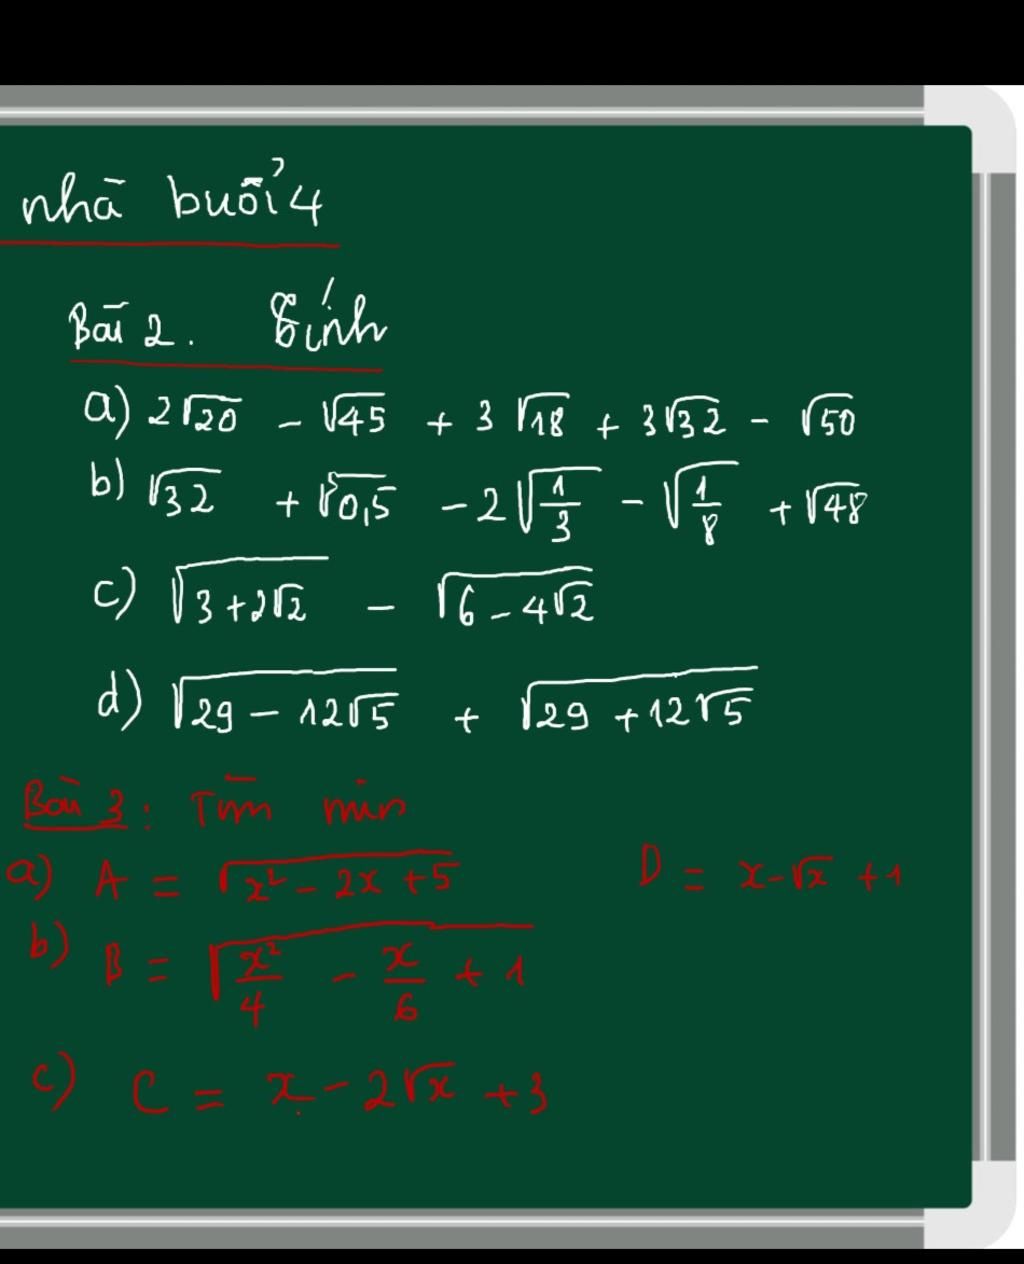 nhà buổi 4
Bài 2. Tính
a) 2√20 - √45 + 3√18 + 3√32 - √50
b) √32 + √0,5 - 2√(1/3) - √(1/8) + √48
c) √(3+2√2) - √(6-4√2)
d) √(29-12√5) + √(29+12√5)
Bài 3: Tìm min
a) A = √(x²-2x+5) D = x-√x+1
b) B = √(x²/4 - x/6 + 1)
c) C = x-2√x+3